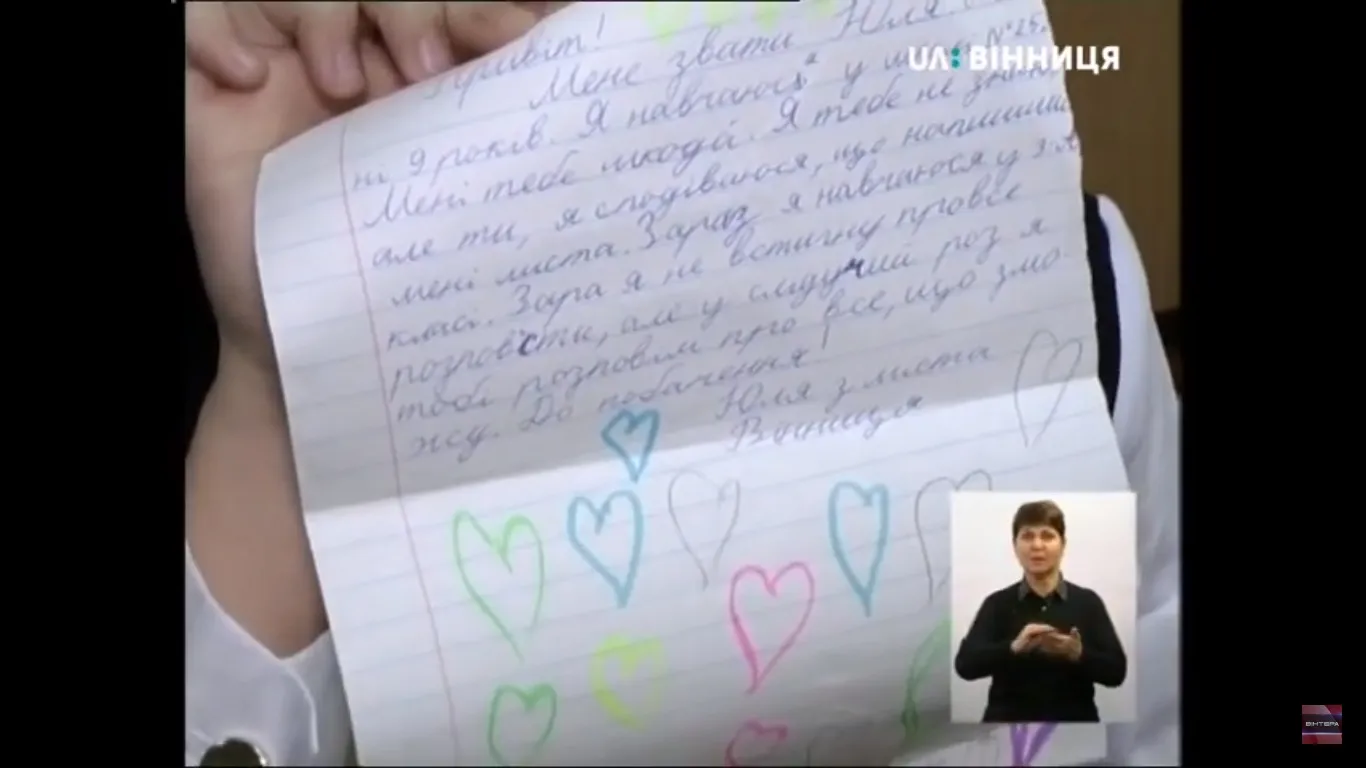 Привіт!
Мене звати Юля
ні 9 років. Я навчаюся у №25.
Мені тебе шкода. Я тебе не
але ти, я сподіваюся, що напишиш
мені листа. Зараз я навчаюся у 3-А
класі. Зара я не встигну провсе
розповісти, але у слідучий роз я
тобі розповім про все, що змо-
жу. До побачення!
Юля з миста
Вінниця
UA: ВІННИЦЯ
ВІНТЕРА